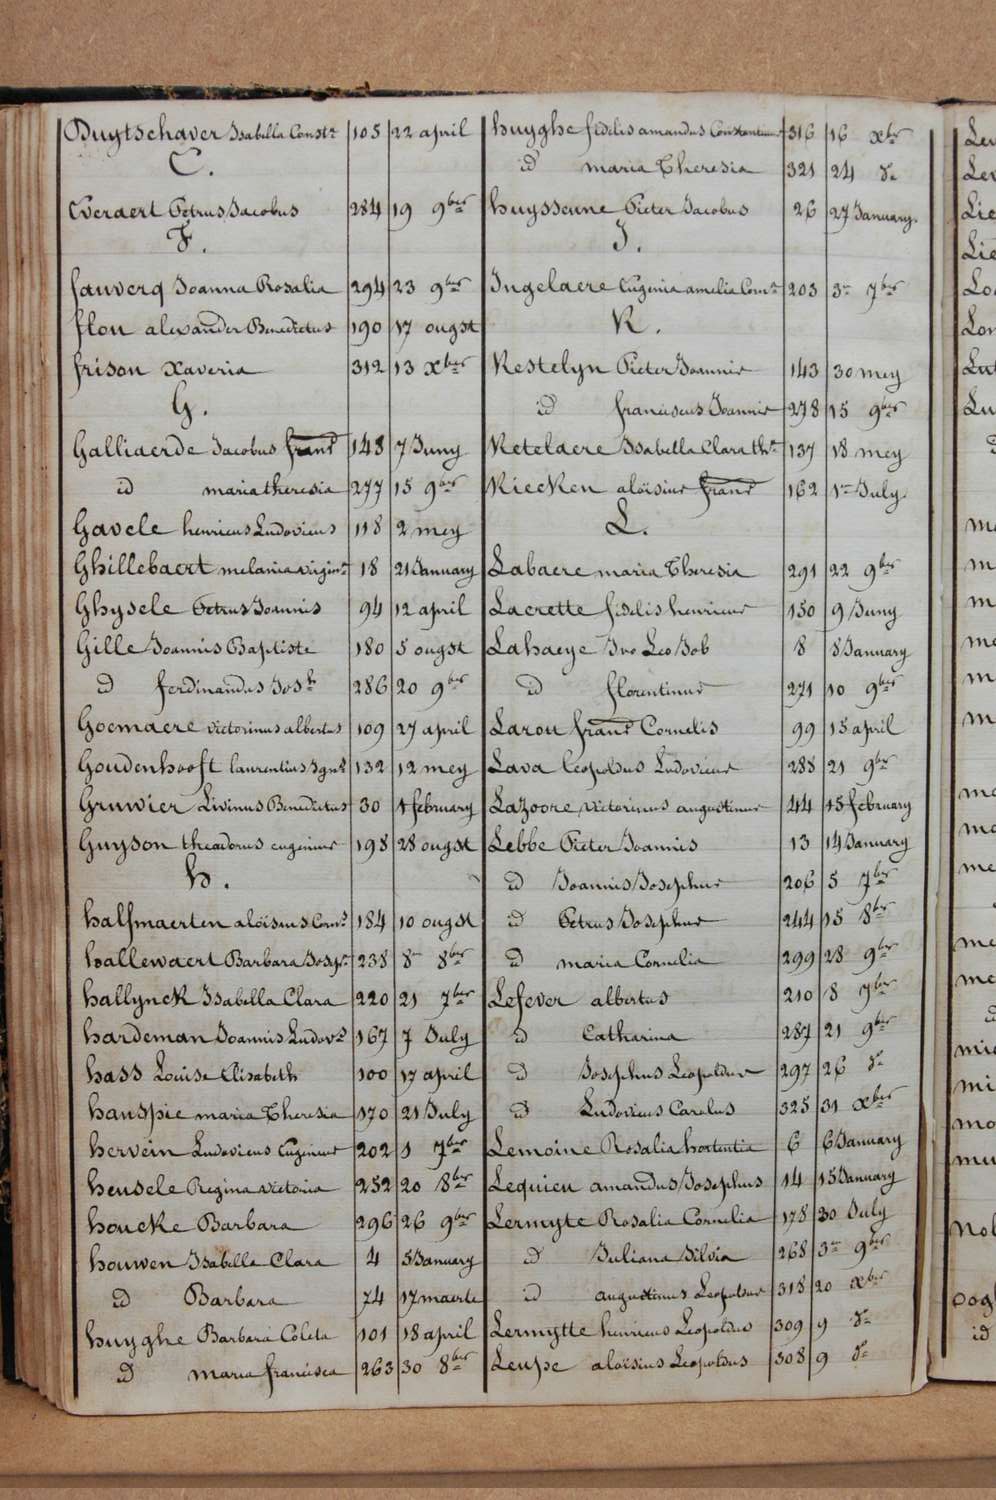 Duytschaver Isabella Const.ᵃ 105 22 april
E.
Everaert Petrus Jacobus 284 19 9ber
F.
fauverq Joanna Rosalia 294 23 9ber
flou alexander Benedictus 190 17 ougst
frison Xaveria 312 13 Xber
G.
Galliaerde Jacobus frans 148 7 Juny
id maria theresia 277 15 9ber
Gavele henricus Ludovicus 118 2 mey
Ghillebaert melania virgin.ᵃ 18 21 January
Ghysele Petrus Joannis 94 12 april
Gille Joannis Baptiste 180 5 ougst
id ferdinandus Josh 286 20 9ber
Goemaere victorinus albertus 109 27 april
Goudenhooft laurentius Ignˢ 132 12 mey
Gruwier Livinus Benedictus 30 1 february
Guyson theodorus eugenius 198 28 ougst
h.
halfmaerten aloïsius Cornˢ 184 10 ougst
hallewaert Barbara Josepᵃ 238 8 8ber
hallynck Isabella Clara 220 21 7ber
hardeman Joannis Ludovˢ 167 7 July
hass Louise Elisabeth 100 17 april
hauspie maria Theresia 170 21 July
hervein Ludovicus Eugenius 202 1 7ber
heusele Regina victoria 252 20 8ber
houcke Barbara 296 26 9ber
houwen Isabella Clara 4 5 January
id Barbara 74 17 maerte
huyghe Barbara Coleta 101 18 april
id maria francisca 263 30 8ber
huyghe fidelis amandus Constantinus 316 16 xber
id maria Theresia 321 24 dº
huysseune Pieter Jacobus 26 27 January.
I.
Ingelaere Eugenia amelia Cornᵃ 203 3 7ber
K.
Kestelyn Pieter Joannis 143 30 mey
id franciscus Joannis 278 15 9ber
Ketelaere Isabella Clara thᵃ 137 18 mey
Kiecken aloïsius frans 162 1 July.
L.
Labaere maria Theresia 291 22 9ber
Lacrette fidelis henricus 150 9 Juny
Lahaeye Ivo Leo Job 8 8 January
id florentinus 271 10 9ber
Larou frans Cornelis 99 15 april
Lava leopoldus Ludovicus 288 21 9ber
Lazoore victorinus augustinus 44 15 february
Lebbe Pieter Joannis 13 14 January
id Joannis Josephus 206 5 7ber
id Petrus Josephus 244 15 8ber
id maria Cornelia 299 28 9ber
Lefever albertus 210 8 7ber
id Catharina 287 21 9ber
id Josephus Leopoldus 297 26 dº
id Ludovicus Carolus 325 31 xber
Lemoine Rosalia hortentia 6 6 January
Lequieu amandus Josephus 14 15 January
Lermyte Rosalia Cornelia 178 30 July
id Juliana Silvia 268 3 9ber
id augustinus Leopoldus 318 20 xber
Lermytte henricus Leopoldus 309 9 dº
Leupe aloïsius Leopoldus 308 9 dº